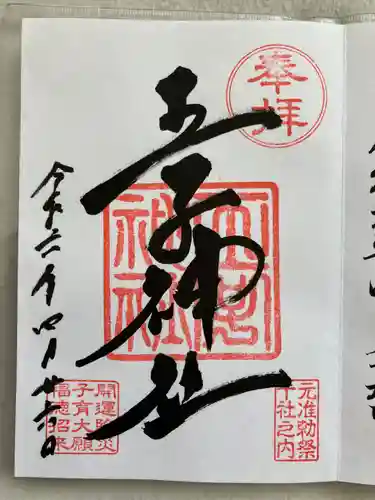 奉拝
元准勅祭
十社之内
王子神社
令和六年四月廿日
開運除災
子育大願
福徳招来